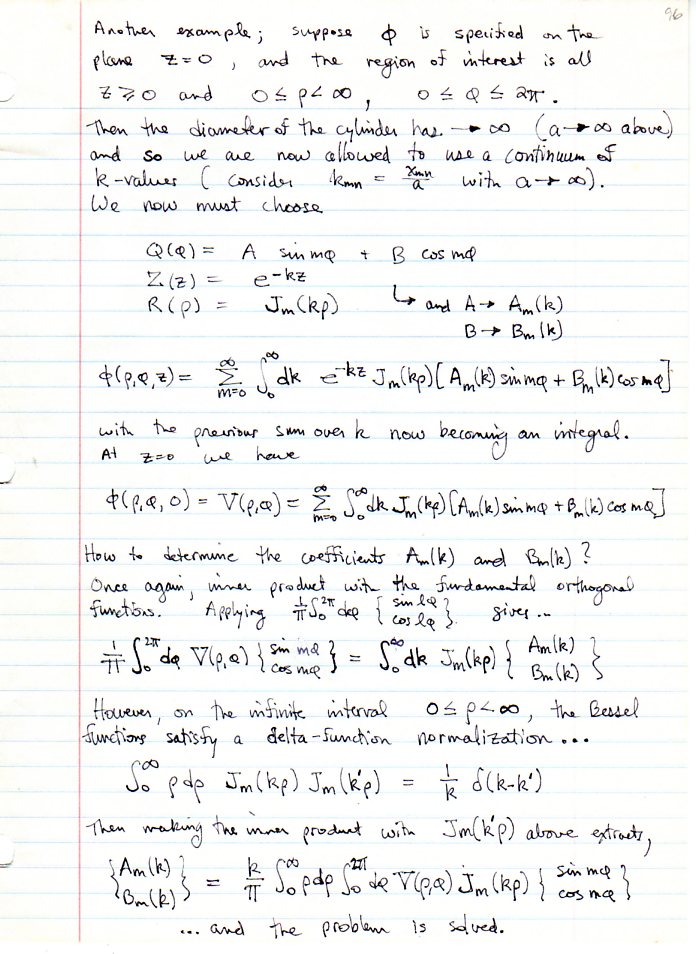 96
Another example; suppose Φ is specified on the
plane z=0, and the region of interest is all
z ≥ 0 and 0 ≤ ρ < ∞, 0 ≤ φ ≤ 2π.
Then the diameter of the cylinder has → ∞ (a → ∞ above)
and so we are now allowed to use a continuum of
k-values (consider k_mn = x_mn/a with a → ∞).
We now must choose
Q(φ) = A sin mφ + B cos mφ
Z(z) = e^-kz
R(ρ) = J_m(kρ) ↳ and A → A_m(k)
B → B_m(k)
Φ(ρ,φ,z) = Σ_{m=0}^∞ ∫_0^∞ dk e^-kz J_m(kρ)[A_m(k) sin mφ + B_m(k) cos mφ]
with the previous sum over k now becoming an integral.
At z=0 we have
Φ(ρ,φ,0) = V(ρ,φ) = Σ_{m=0}^∞ ∫_0^∞ dk J_m(kρ)[A_m(k) sin mφ + B_m(k) cos mφ]
How to determine the coefficients A_m(k) and B_m(k)?
Once again, inner product with the fundamental orthogonal
functions. Applying 1/π ∫_0^2π dφ {sin lφ / cos lφ} gives..
1/π ∫_0^2π dφ V(ρ,φ) {sin mφ / cos mφ} = ∫_0^∞ dk J_m(kρ) {A_m(k) / B_m(k)}
However, on the infinite interval 0 ≤ ρ < ∞, the Bessel
functions satisfy a delta-function normalization...
∫_0^∞ ρ dρ J_m(kρ) J_m(k'ρ) = 1/k δ(k-k')
Then making the inner product with J_m(k'ρ) above extracts,
{A_m(k) / B_m(k)} = k/π ∫_0^∞ ρdρ ∫_0^2π dφ V(ρ,φ) J_m(kρ) {sin mφ / cos mφ}
... and the problem is solved.